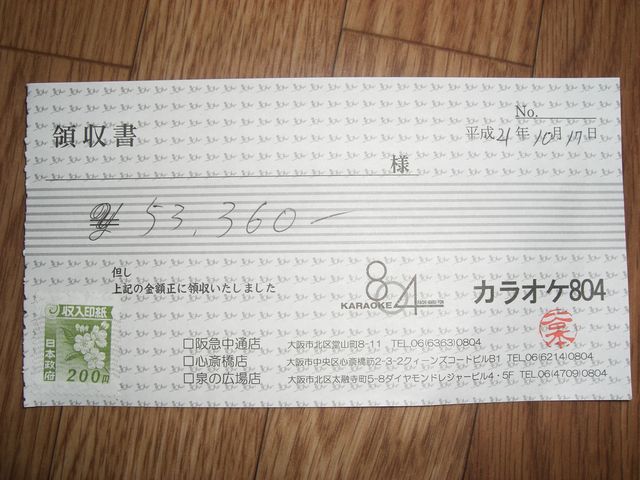 No.
領収書
平成21年10月17日
様
¥53,360-
但し
上記の金額正に領収いたしました
804
KARAOKE
カラオケ804
収入印紙
日本政府
200円
□阪急中通店 大阪市北区堂山町8-11 TEL06(6363)0804
□心斎橋店 大阪市中央区心斎橋筋2-3-2クィーンズコートビルB1 TEL06(6214)0804
□泉の広場店 大阪市北区太融寺町5-8ダイヤモンドレジャービル4・5F TEL06(4709)0804